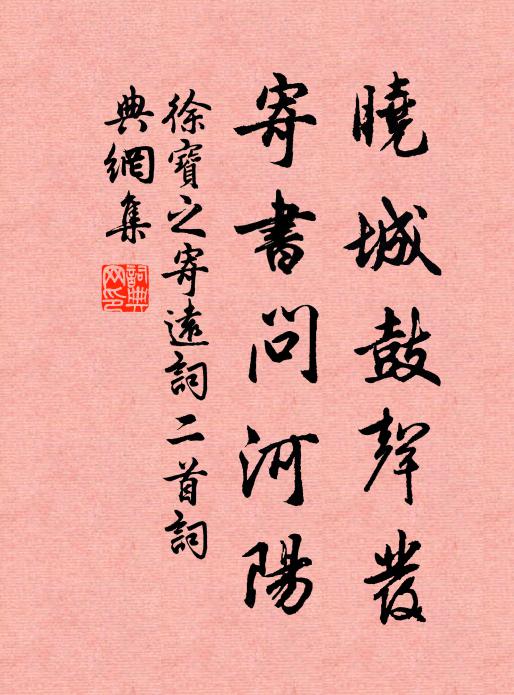 曉城鼓聲發
寄書問河陽
徐寶之寄遠詞二首詞
典網集
詞典
网印